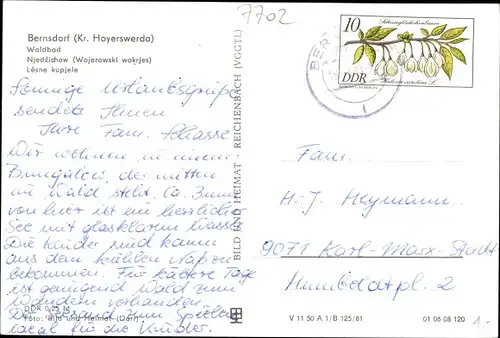 7702
Bernsdorf (Kr. Hoyerswerda)
Waldbad
Njedźichow (Wojerowski wokrjes)
Lěsne kupjele
Sonnige Urlaubsgrüße
sendet Ihnen
Ihre Fam.
Wir wohnen in einem
Bungalow, der mitten
im Wald steht. Ca.
von hier ist ein herrlicher
See mit glasklarem Wasser
Die Kinder sind kaum
aus dem kühlen Naß zu
bekommen. Für kältere Tage
ist genügend Wald zum
Wandern vorhanden.
Der Strand zum Spielen
ideal für die Kinder.
DDR 0,25 M
Foto: Bild und Heimat (Darr)
BILD UND HEIMAT · REICHENBACH (VOGTL)
10
DDR
BERN
Fam.
H.-J. Heymann
9071 Karl-Marx-Stadt
Humboldtpl. 2
V 11 50 A 1/B 125/81
01 06 08 120
1.-